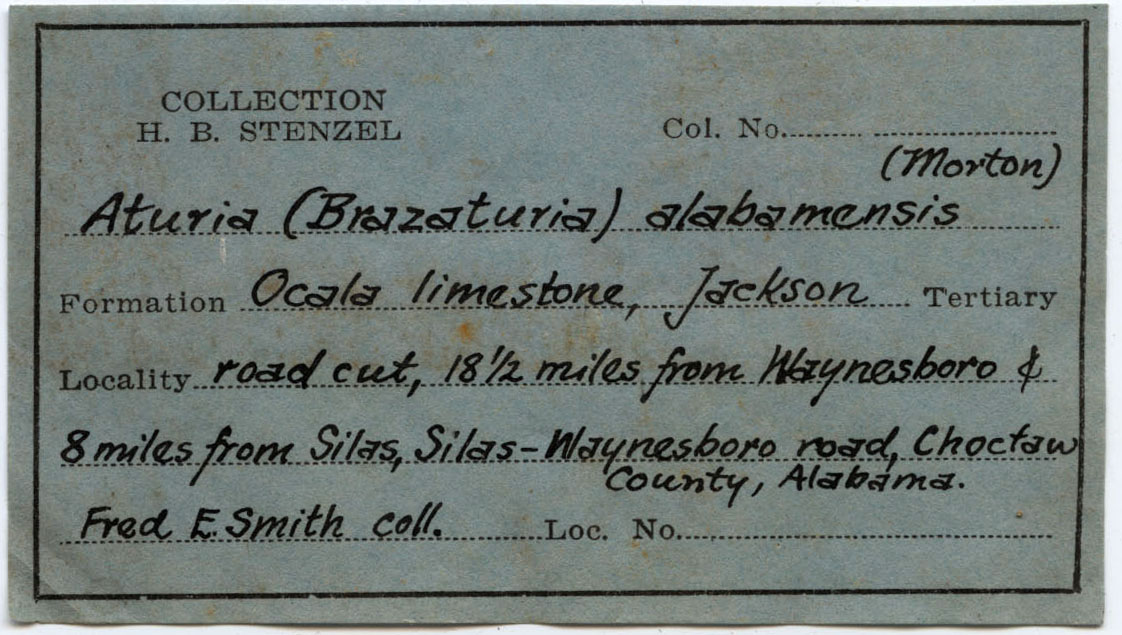 COLLECTION
H. B. STENZEL
Col. No.
(Morton)
Aturia (Brazaturia) alabamensis
Formation Ocala limestone, Jackson Tertiary
Locality road cut, 18 1/2 miles from Waynesboro &
8 miles from Silas, Silas-Waynesboro road, Choctaw
County, Alabama.
Fred E. Smith coll. Loc. No.